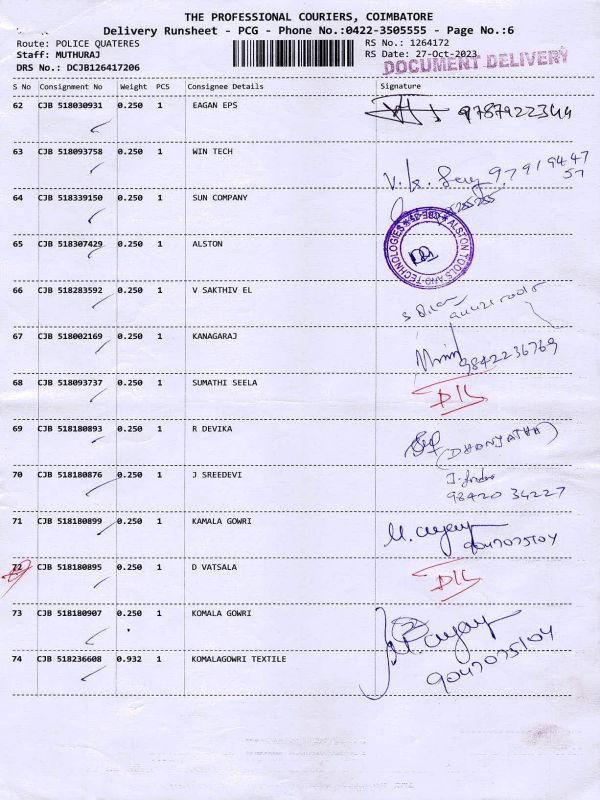 THE PROFESSIONAL COURIERS, COIMBATORE
Delivery Runsheet - PCG - Phone No.:0422-3505555 - Page No.:6
Route: POLICE QUATERES RS No.: 1264172
Staff: MUTHURAJ RS Date: 27-Oct-2023
DOCUMENT DELIVERY
DRS No.: DCJB126417206
S No Consignment No Weight PCS Consignee Details Signature
62 CJB 518030931 0.250 1 EAGAN EPS 9787922344
63 CJB 518093758 0.250 1 WIN TECH
97919447
57
64 CJB 518339150 0.250 1 SUN COMPANY
65 CJB 518307429 0.250 1 ALSTON
ALSTON TOOLS AND TECHNOLOGIES
66 CJB 518283592 0.250 1 V SAKTHIV EL
67 CJB 518002169 0.250 1 KANAGARAJ
9842236769
68 CJB 518093737 0.250 1 SUMATHI SEELA
D/L
69 CJB 518180893 0.250 1 R DEVIKA
70 CJB 518180876 0.250 1 J SREEDEVI
98420 34227
71 CJB 518180899 0.250 1 KAMALA GOWRI
9047075104
72 CJB 518180895 0.250 1 D VATSALA
D/L
73 CJB 518180907 0.250 1 KOMALA GOWRI
74 CJB 518236608 0.932 1 KOMALAGOWRI TEXTILE
9047075104